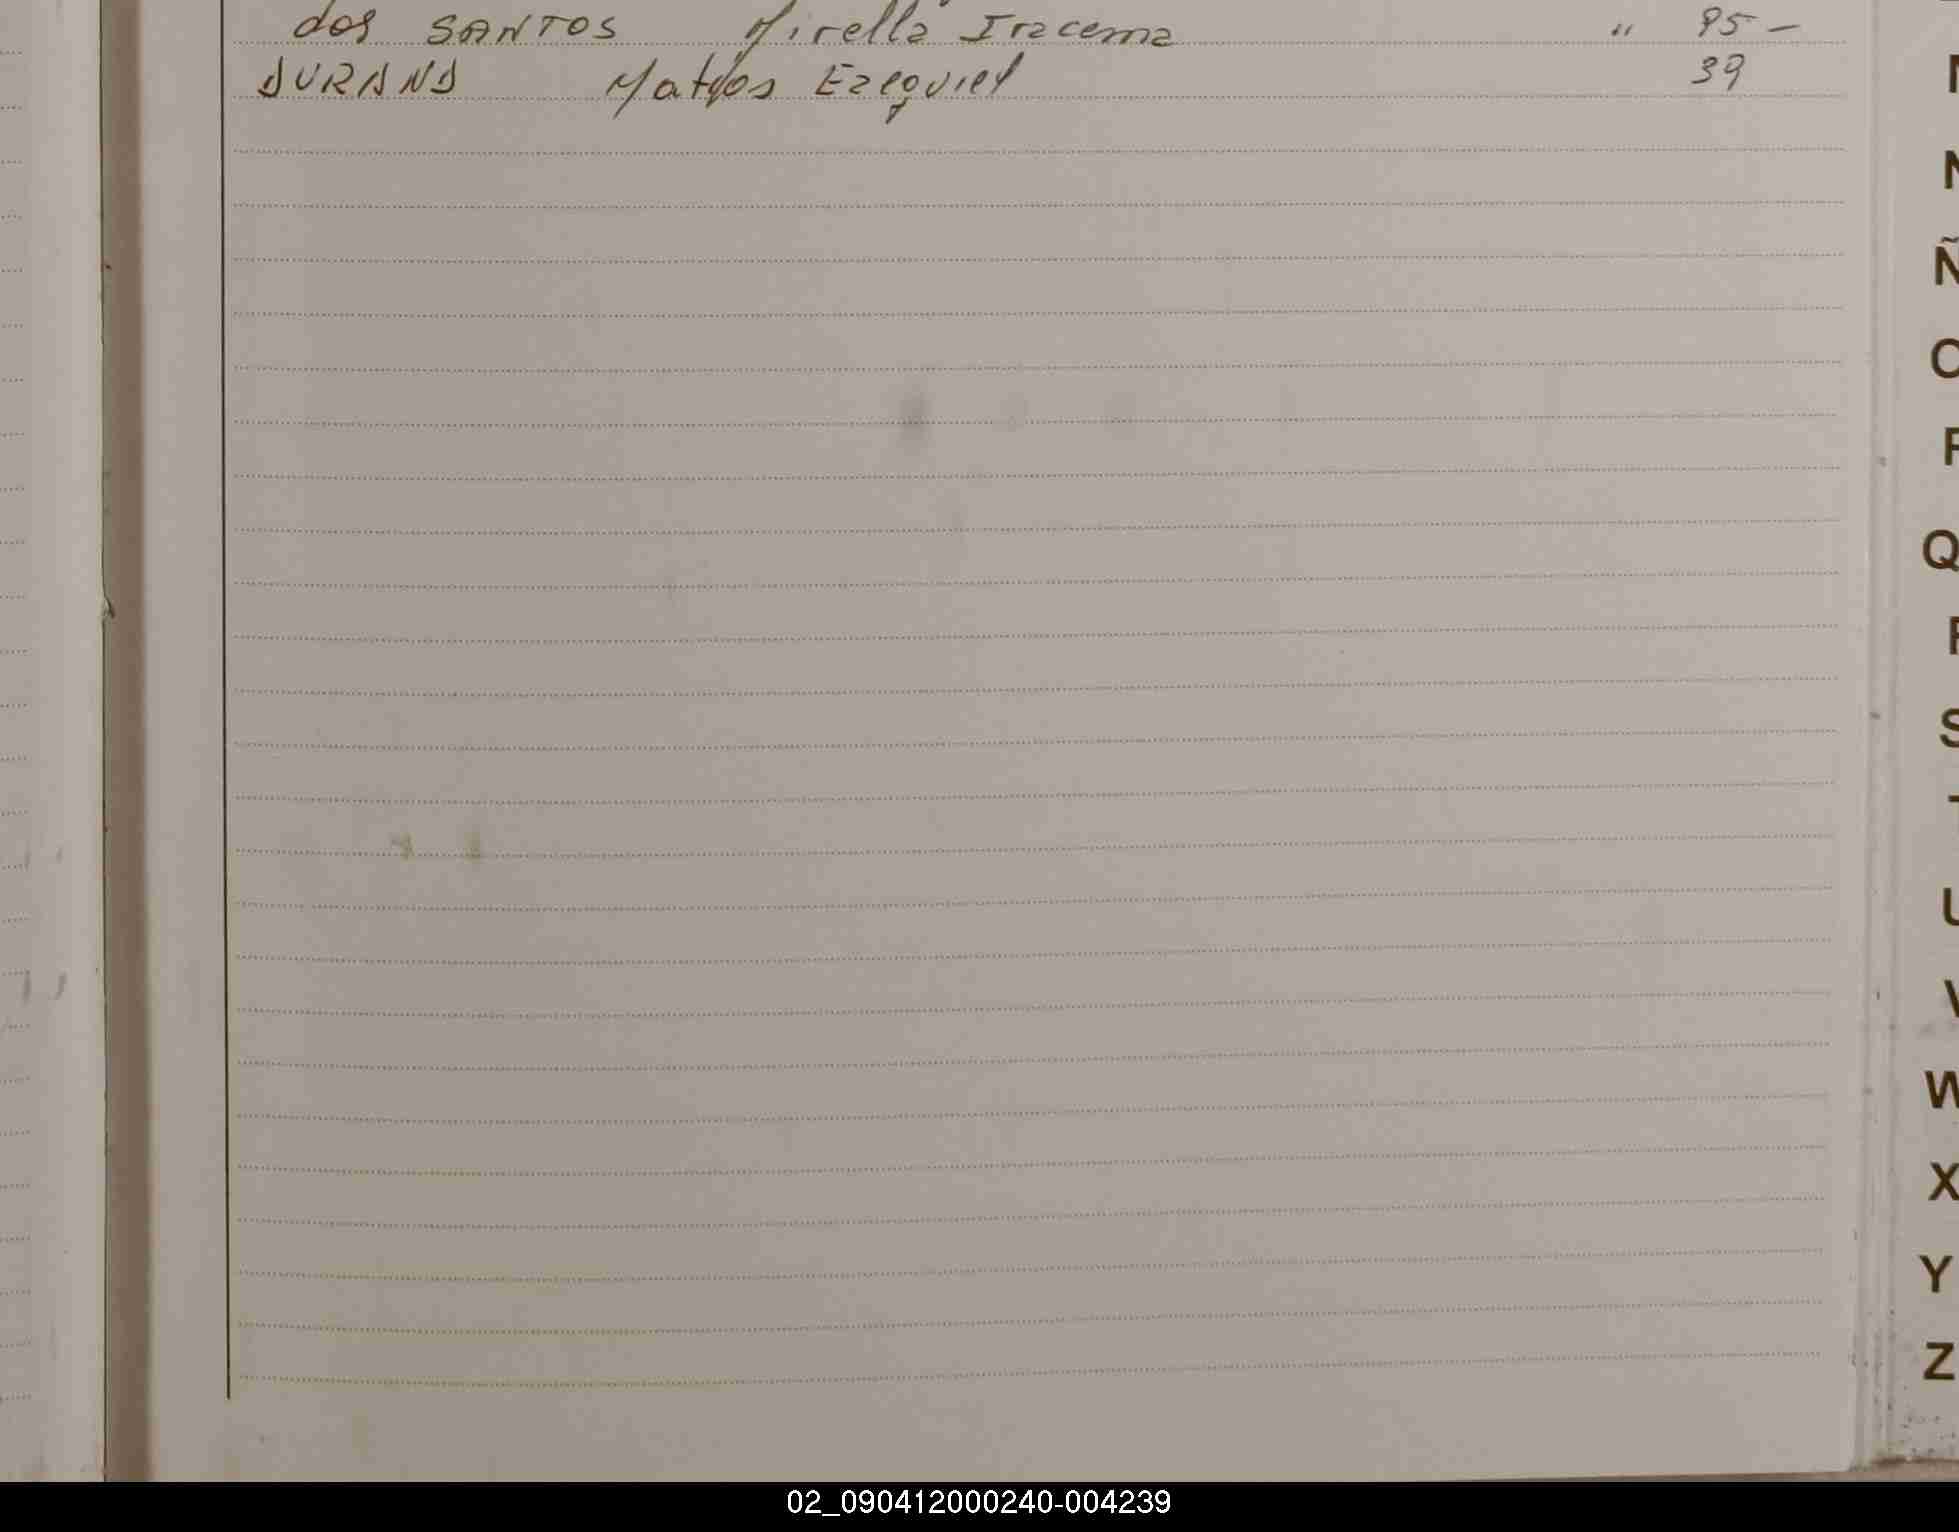 dos SANTOS Mirella Iracema " 95 -
DURAND Matios Ezequiel 39
N
Ñ
O
P
Q
R
S
T
U
V
W
X
Y
Z
02_090412000240-004239